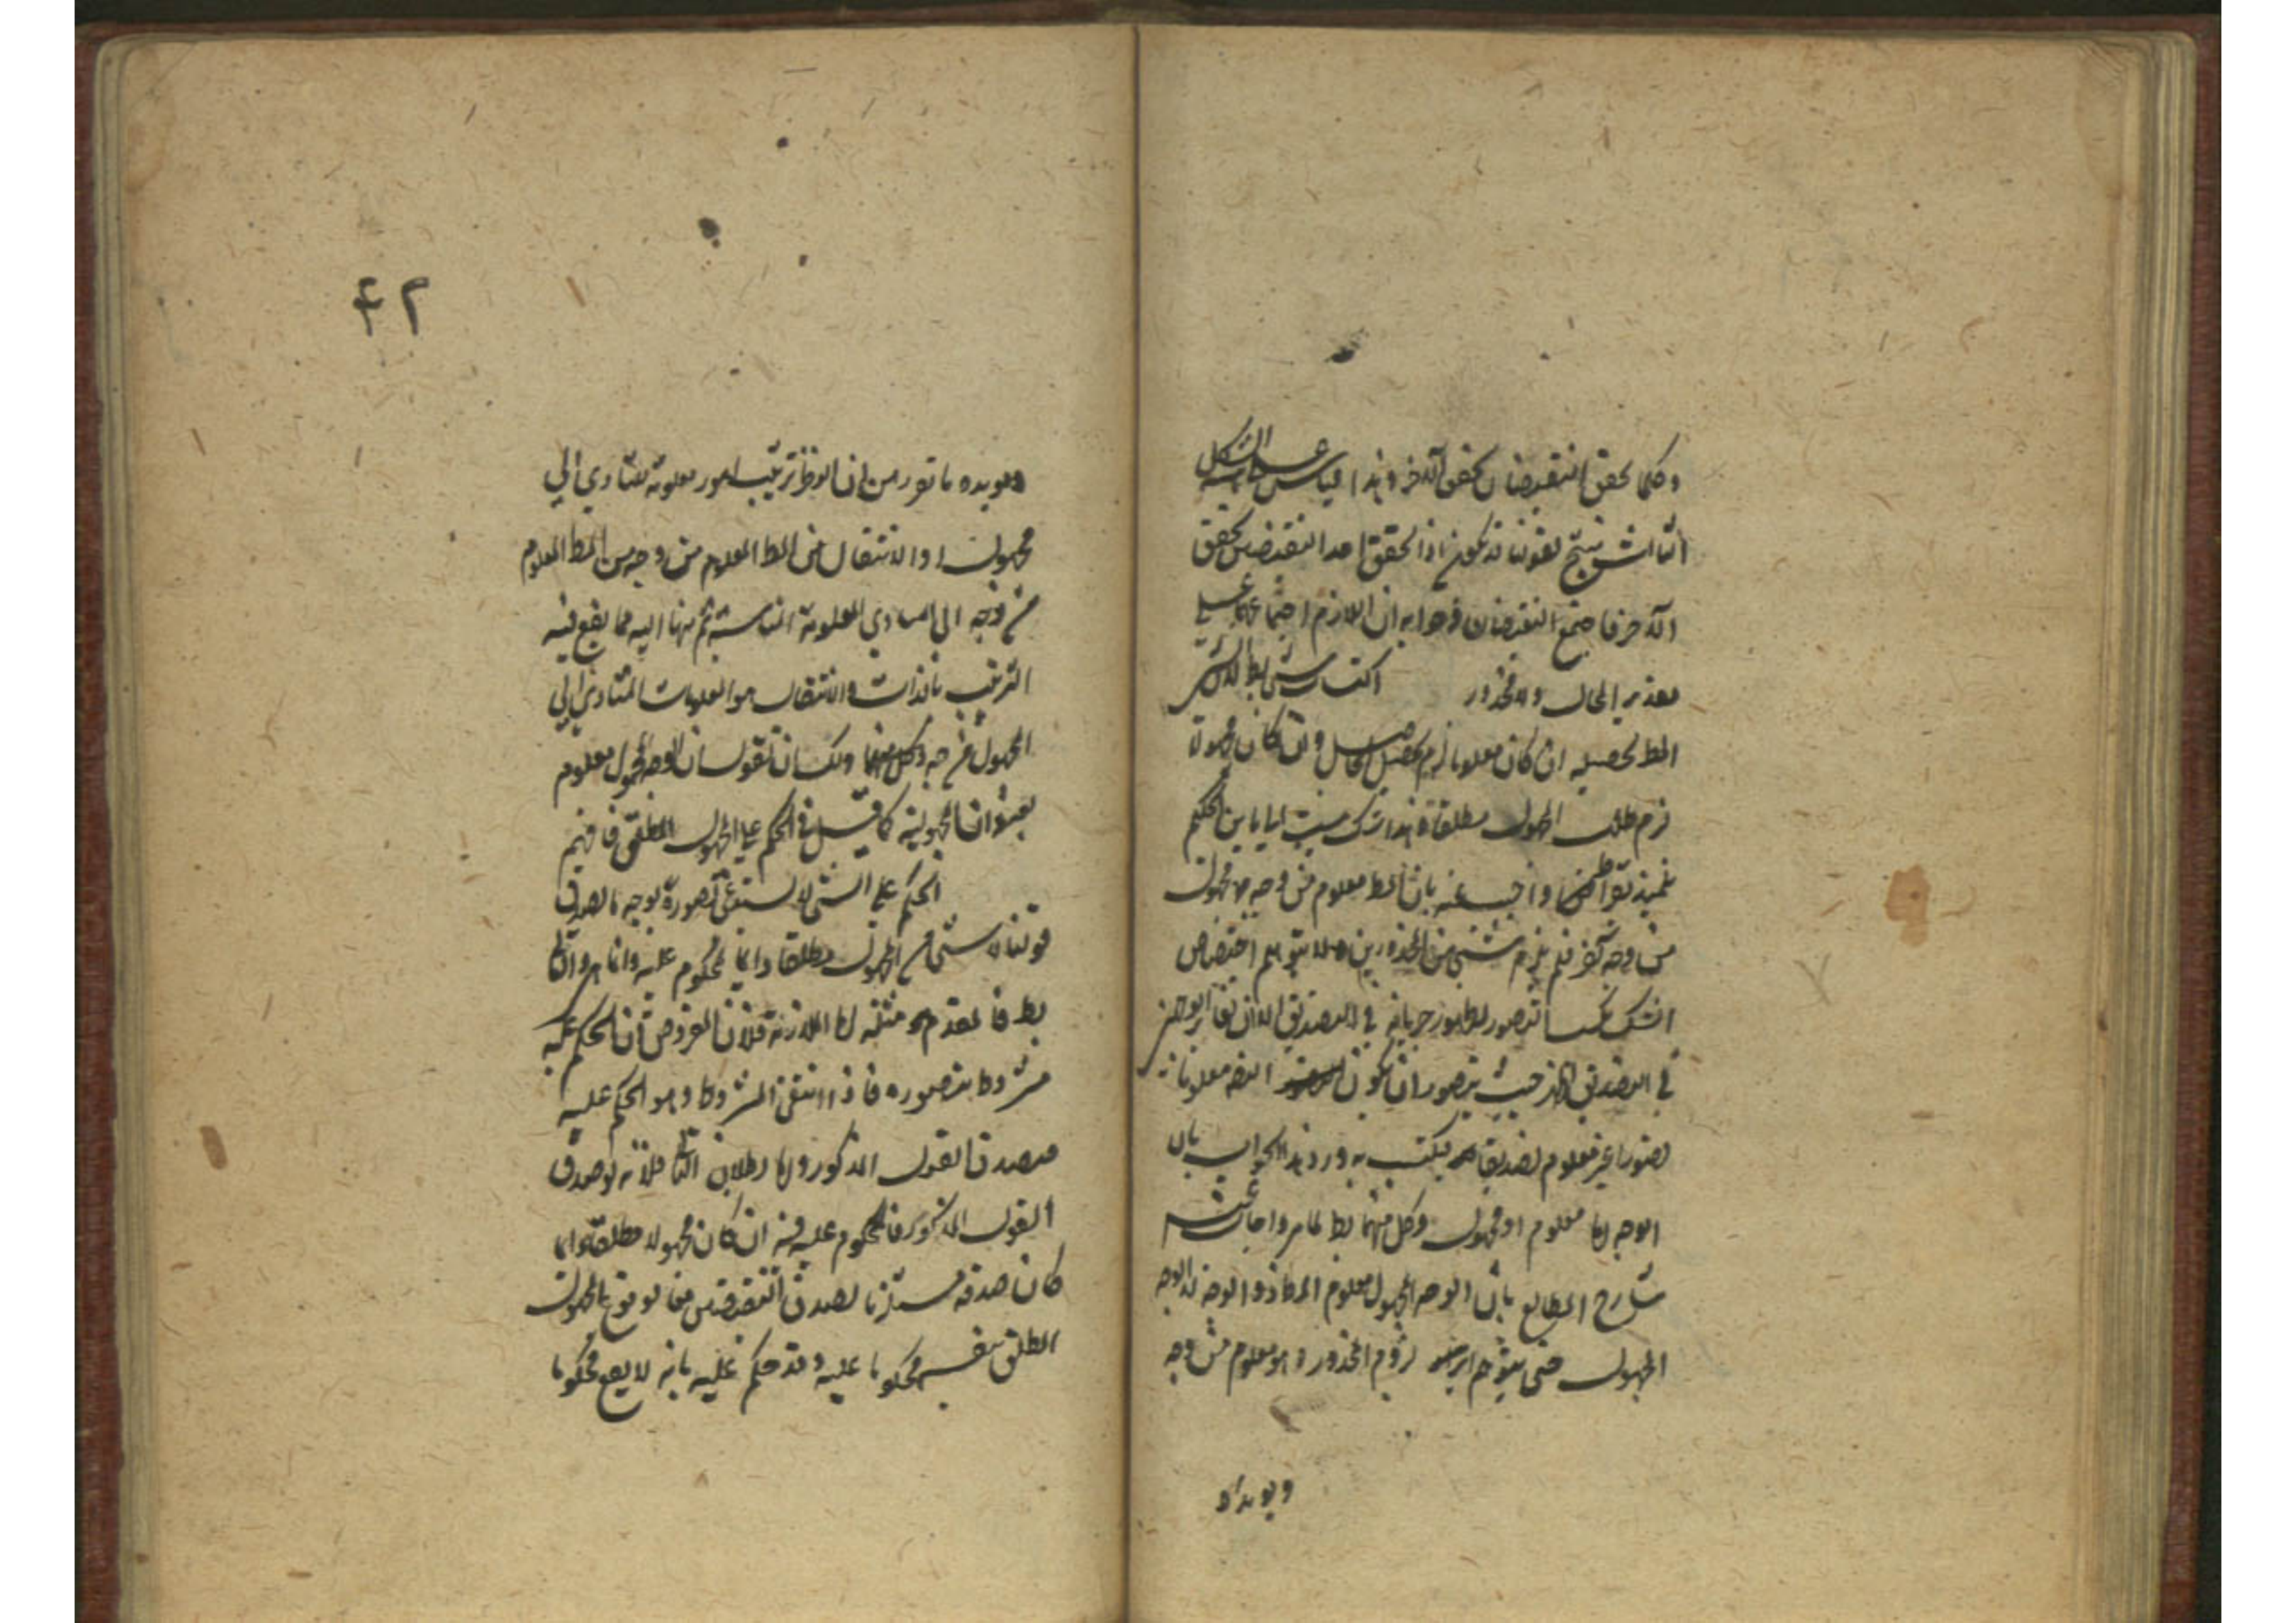 وكلما تحقق النقيضان تحقق الآخر وهذا قياس على الشكل
الثالث ينتج لقولنا قد يكون اذا تحقق احد النقيضين تحقق
الآخر فاجتمع النقيضان وجوابه ان اللازم اجتماعهما على
تقدير المحال ولا محذور اكتساب شئ بط لان
المط تحصيله ان كان معلوما لزم تحصيل الحاصل وان كان مجهولا
لزم طلب المجهول مطلقا وهذا شك
واجيب عنه بان المط معلوم من وجه مجهول
من وجه آخر فلم يلزم شئ من المحذورين ولا يتوهم اختصاص
الشك بكسب التصور لظهور جريانه في التصديق الا ان تغاير الوجهين
في التصديق اظهر حيث يتصور ان يكون القضه معلومات
تصورا غير معلوم تصديقا يكتسب به ورد هذا الجواب بان
الوجه اما معلوم او مجهول وكل منهما بط لما مر واجاب عنه
شارح المطالع بان الوجه المجهول معلوم المط ذو الوجه لا الوجه
المجهول حتى يتوهم لزوم المحذور وهو معلوم من وجه
ويويده
۴۲
ويويده ما تقرر من ان النظر ترتيب امور معلومة للتادي الى
مجهول او الانتقال من المط المعلوم من وجه من المط المعلوم
من وجه الى المبادي المعلومة المناسبة ثم منها اليه مما يقع فيه
الترتيب بالذات والانتقال هو المعلومات المتادي الى
المجهول من وجه ولك ان تقول ان الوجه المجهول معلوم
بعنوان المجهولية كما قيل في الحكم على المجهول المطلق فافهم
الحكم على الشئ لا يستدعي تصوره بوجه ما لصدق
قولنا لا شئ من المجهول مطلقا دائما محكوم عليه دائما هو والتالي
بط فالمقدم مثله اما الملازمة فلان المفروض ان الحكم عليه
مشروط بتصوره فاذا انتفى المشروط وهو الحكم عليه
فيصدق القول المذكور واما بطلان التالي فلانه لو صدق
القول المذكور فالمحكوم عليه فيه ان كان مجهولا مطلقا دائما
كان صدقه مستلزما لصدق النقيضين معا لوقوع المجهول
المطلق نفسه محكوما عليه وقد حكم عليه بانه لا يقع محكوما